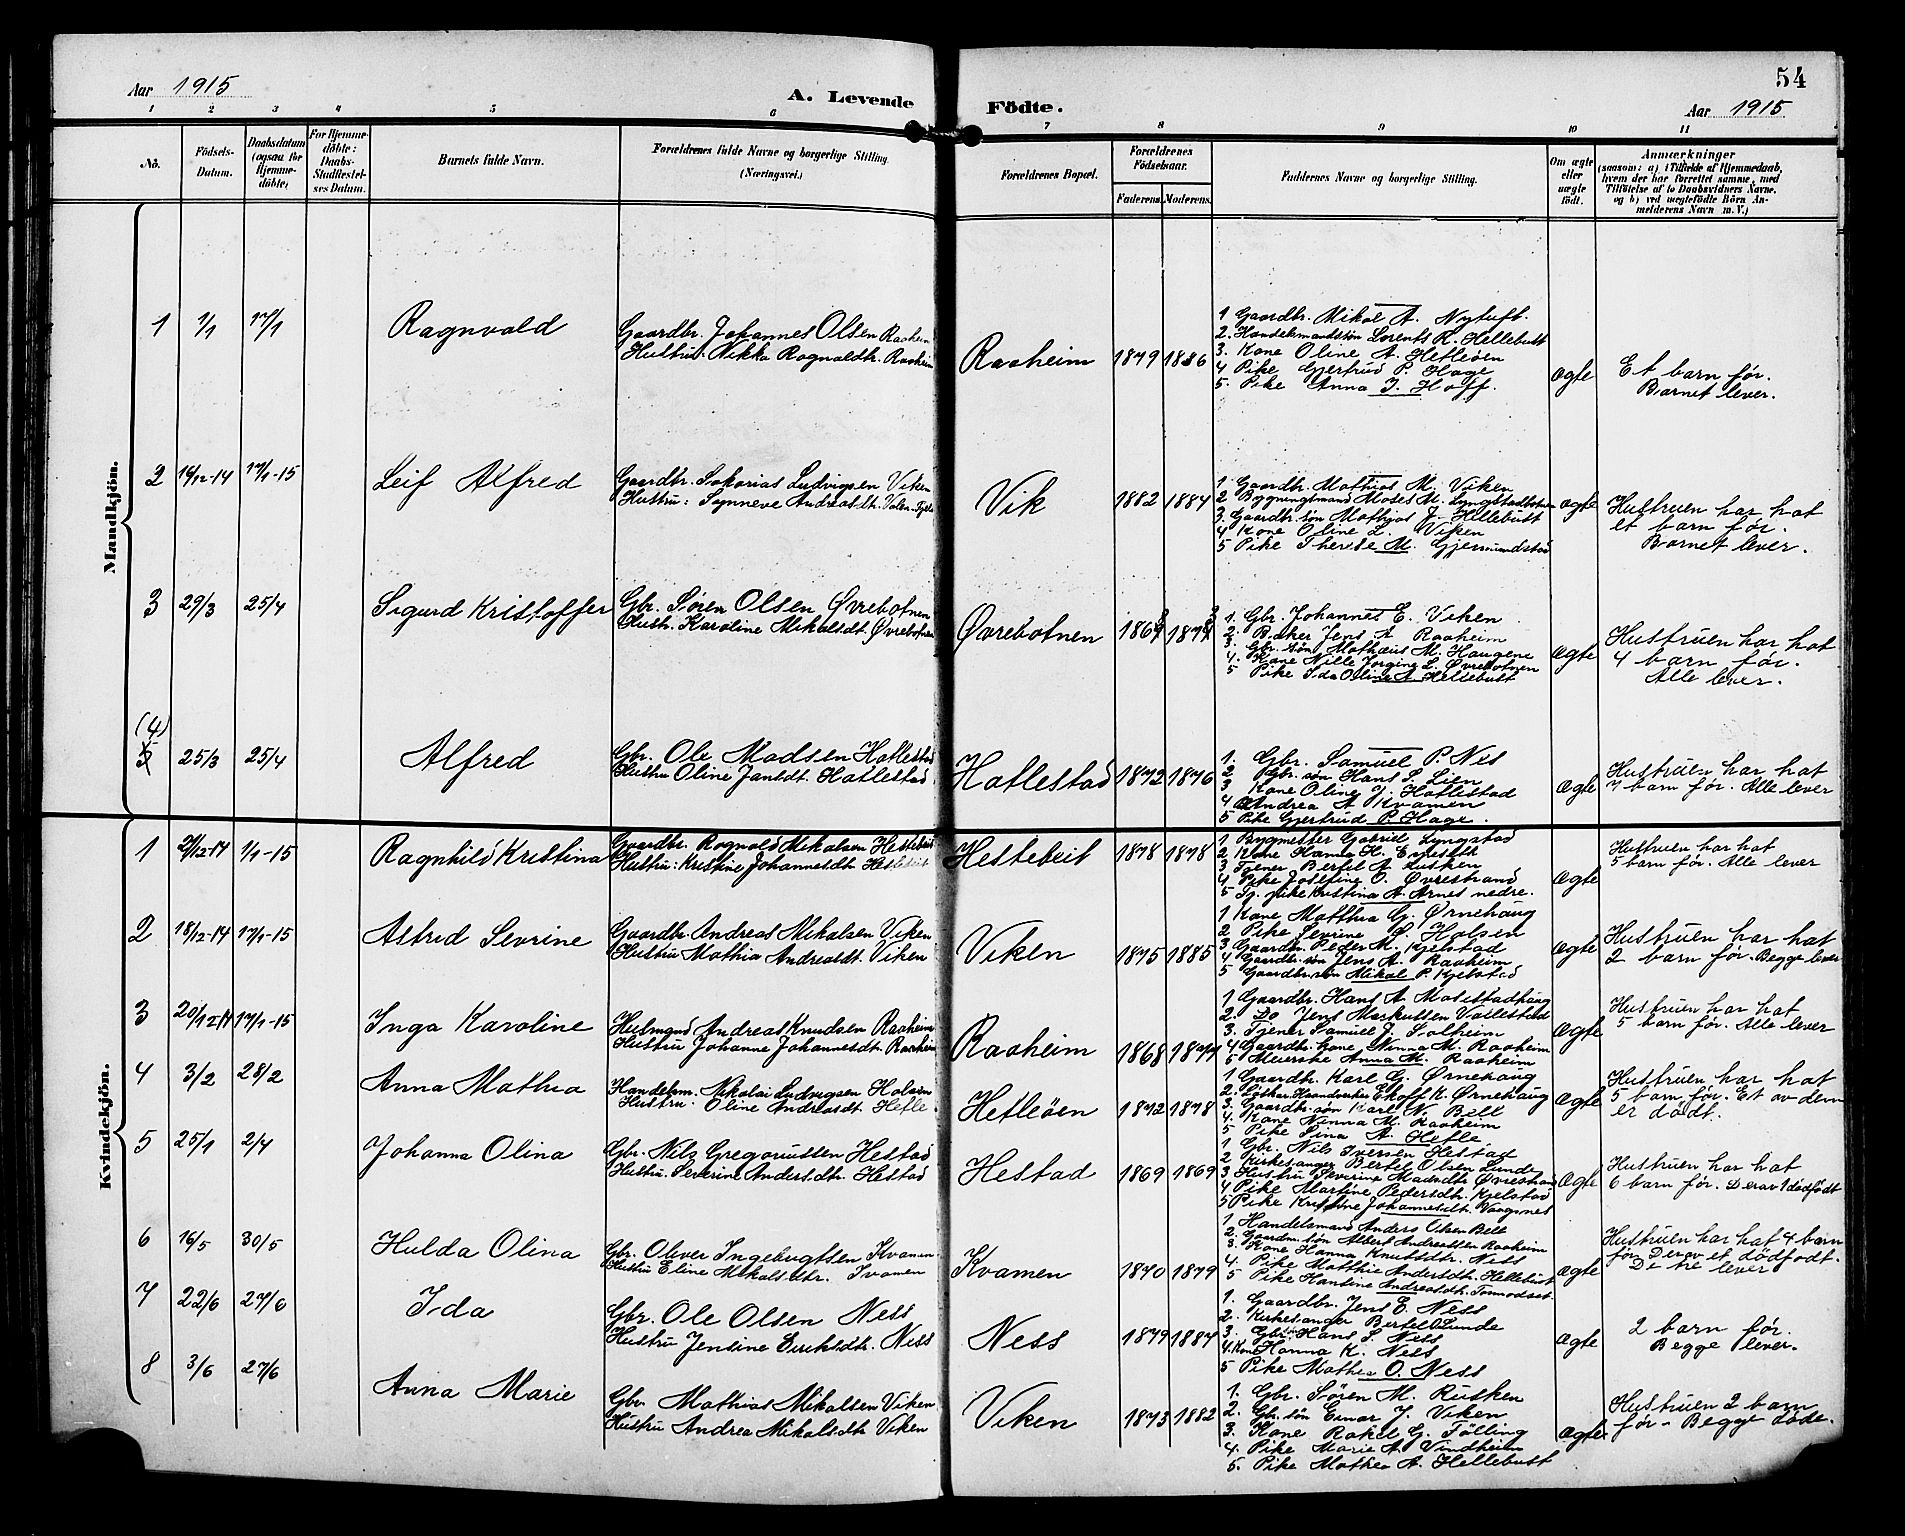 Aar 1915
A. Levende Födte.
54
Aar 1915
1 2 3 4 5 6 7 8 9 10 11
No.
Födsels-Datum.
Daabsdatum (ogsaa for Hjemme-döbte)
For Hjemme-döbte: Daabs-Stadfæstel-ses Datum.
Barnets fulde Navn.
Forældrenes fulde Navne og borgerlige Stilling.
(Næringsvei.)
Forældrenes Bopæl.
Forældrenes Födselsaar.
Faderens. Moderens.
Faddernes Navne og borgerlige Stilling.
Om ægte eller uægte födt.
Anmærkninger
(saasom: a) i Tilfælde af Hjemmedaab,
hvem der har forrettet samme, med
Tilföielse af to Daabsvidners Navne,
og b) ved uægtefödte Börn An-
melderens Navn m. V.)
Mandkjön.
1 1/1 17/1 Ragnvald
Gaardbr. Johannes Olsen Raaheim
Hustru: Nikka Ragnvaldtr. Raaheim
Raaheim 1879 1886
1 Gaardbr. Mikal A. Nytuft.
2. Handelsmandsøn Lorents K. Hellebust
3. Kone Oline A. Hefleøen
4 Pike Gjertrud P. Hage
5. Pike Anna J. Hoff.
ægte
Et barn før.
Barnet lever.
2 14/12-14 17/1-15 Leif Alfred
Gaardbr. Sakarias Ludvigsen Viken
Hustru: Synneve Andreasdtr.
Vik 1882 1884
1 Gaardbr. Mathias M. Viken
2 Bygningsmand Moses M. Lyngstadbotnen
3. Gaardbr. søn Mathias J. Hellebust
4 Kone Oline L. Viken
5 Pike Therese M. Gjemundstad
ægte
Hustruen har hat
et barn før.
Barnet lever.
3 29/3 25/4 Sigurd Kristoffer
Gbr. Søren Olsen Øvrebotnen
Hustr. Karoline Mikalsdt. Øvrebotnen
Øvrebotnen
1. Gbr. Johannes E. Viken
2. Baker Jens A Raaheim
3. Gbr. søn Mathæus M. Haugene
4. Kone Nille Jorgine L. Øvrebotnen
5 Pike Ida Oline A. Hellebust
ægte
Hustruen har hat
4 barn før.
Alle lever.
(4)
5 25/3 25/4 Alfred
Gbr. Ole Madsen Hatlestad
Hustru Oline Jansdt. Hatlestad
Hatlestad 1872 1876
1. Gbr. Samuel P. Nes
2 Gbr. søn Hans S. Lien
3 Kone Oline J. Hatlestad
4 Andrea A Kvamen
5 Pike Gjertrud P. Hage.
ægte
Hustruen har hat
7 barn før. Alle lever
Kvindekjön.
1 1/1-15 Ragnhild Kristina
Gaardbr. Ragnald Mikalsen Hestebeit
Hustru: Kristine Johannesdtr. Hestebeit
Hestebeit 1878 1878
1 Bygmester Gabriel Lyngstad
2 Kone Hanna H. Espeseth
3 Tjener Bertel A Rusken
4 Pike Josefine O. Øvrestrand
5 Tj. pike Kristina A. Arnes nedre.
ægte
Hustruen har hat
5 barn før. Alle lever
2 18/12-14 17/1-15 Astrid Sevrine
Gaardbr. Andreas Mikalsen Viken
Hustru Mathia Andreasdt. Viken
Viken 1875 1885
1 Kone Matthea G. Ørnehaug
2 Pike Sevrine O. Holsen
3 Gaardbr. Peder M. Kjelstad
4 Gaardbr. søn Jens A. Raaheim
5 Gaardbr. søn Mikal P. Kjelstad
ægte
Hustruen har hat
2 barn før. Begge lever
3 20/12-14 17/1-15 Inga Karoline
Husmand Andreas Knudsen Raaheim
Hustru Johanne Johannesdt. Raaheim
Raaheim 1868 1877
1 Gaardbr. Hans A. Masistadhaug
2. Do Jens Markussen Vallestad
3. Tjener Samuel J. Solheim
4 Gaardbr. kone Ninna M. Raaheim
5 Meierske Anna M. Raaheim
ægte
Hustruen har hat
5 barn før. Alle lever
4 3/2 28/2 Anna Mathea
Handelsm. Mikolai Ludvigsen Holsen
Hustru: Oline Andreasdt. Hefle
Hefleøen 1872 1878
1 Gaardbr. Karl G. Ørnehaug
2. Haandverker K. Ørnehaug
3. Gaardbr. søn Karl N. Bell
4. Kone Ninna M. Raaheim
5 Pike Sina A. Hefle
ægte
Hustruen har hat
5 barn før. Et av dem
er dødt.
5 25/1 2/4 Johanna Olina
Gbr. Nils Gregoriussen Hestad
Hustru Severine Andersdtr. Hestad
Hestad 1869 1869
1 Gbr. Nils Iversen Hestad
2 Kirkesanger Bertel Olsen Lunde
3 Hustru Severine Madsdtr Øvrestrand
4 Pike Martine Pedersdtr. Kjelstad
5 Pike Kristine Johannesdtr. Vaagsnes
ægte
Hustruen har hat
6 barn før. Derav 1 dødfødt
6 16/5 30/5 Hulda Olina
Gbr. Oliver Ingebrigtsen Kvamen
Hustru Eline Mikalsdtr. Kvamen
Kvamen 1870 1879
1 Handelsmand Anders Olsen Bell
2. Gaardm. søn Albert Andreassen Raaheim
3. Kone Hanna Knutsdtr. Ness
4. Pike Matthie Andersdtr. Hellebust
5 Pike Hansine Andreasdtr. Tormodset
ægte
Hustruen har hat 4 barn
før Derav et dødfødt.
De tre lever
7 22/6 27/6 Ida
Gbr. Ole Olsen Ness
Hustru Jensine Ness
Ness 1879 1884
1. Gaardbr. Jens E. Ness
2. Kirkesanger Bertel O. Lunde
3. Gbr. Hans S. Ness
4. Kone Hanna K. Ness
5 Pike Mathea O. Ness
ægte
2 barn før.
Begge lever.
8 3/6 27/6 Anna Marie
Gbr. Mathias Mikalsen Viken
Hustru Andrea Mikalsdtr Viken
Viken 1873 1882
1. Gbr. Søren M. Rusken
2. Gbr. søn Einar J. Viken
3. Kone Rakel G. Fölling
4. Pike Marie A. Vindheim
5. Pike Mathea A. Hellebust
ægte
Hustruen 2 barn
før. Begge døde.